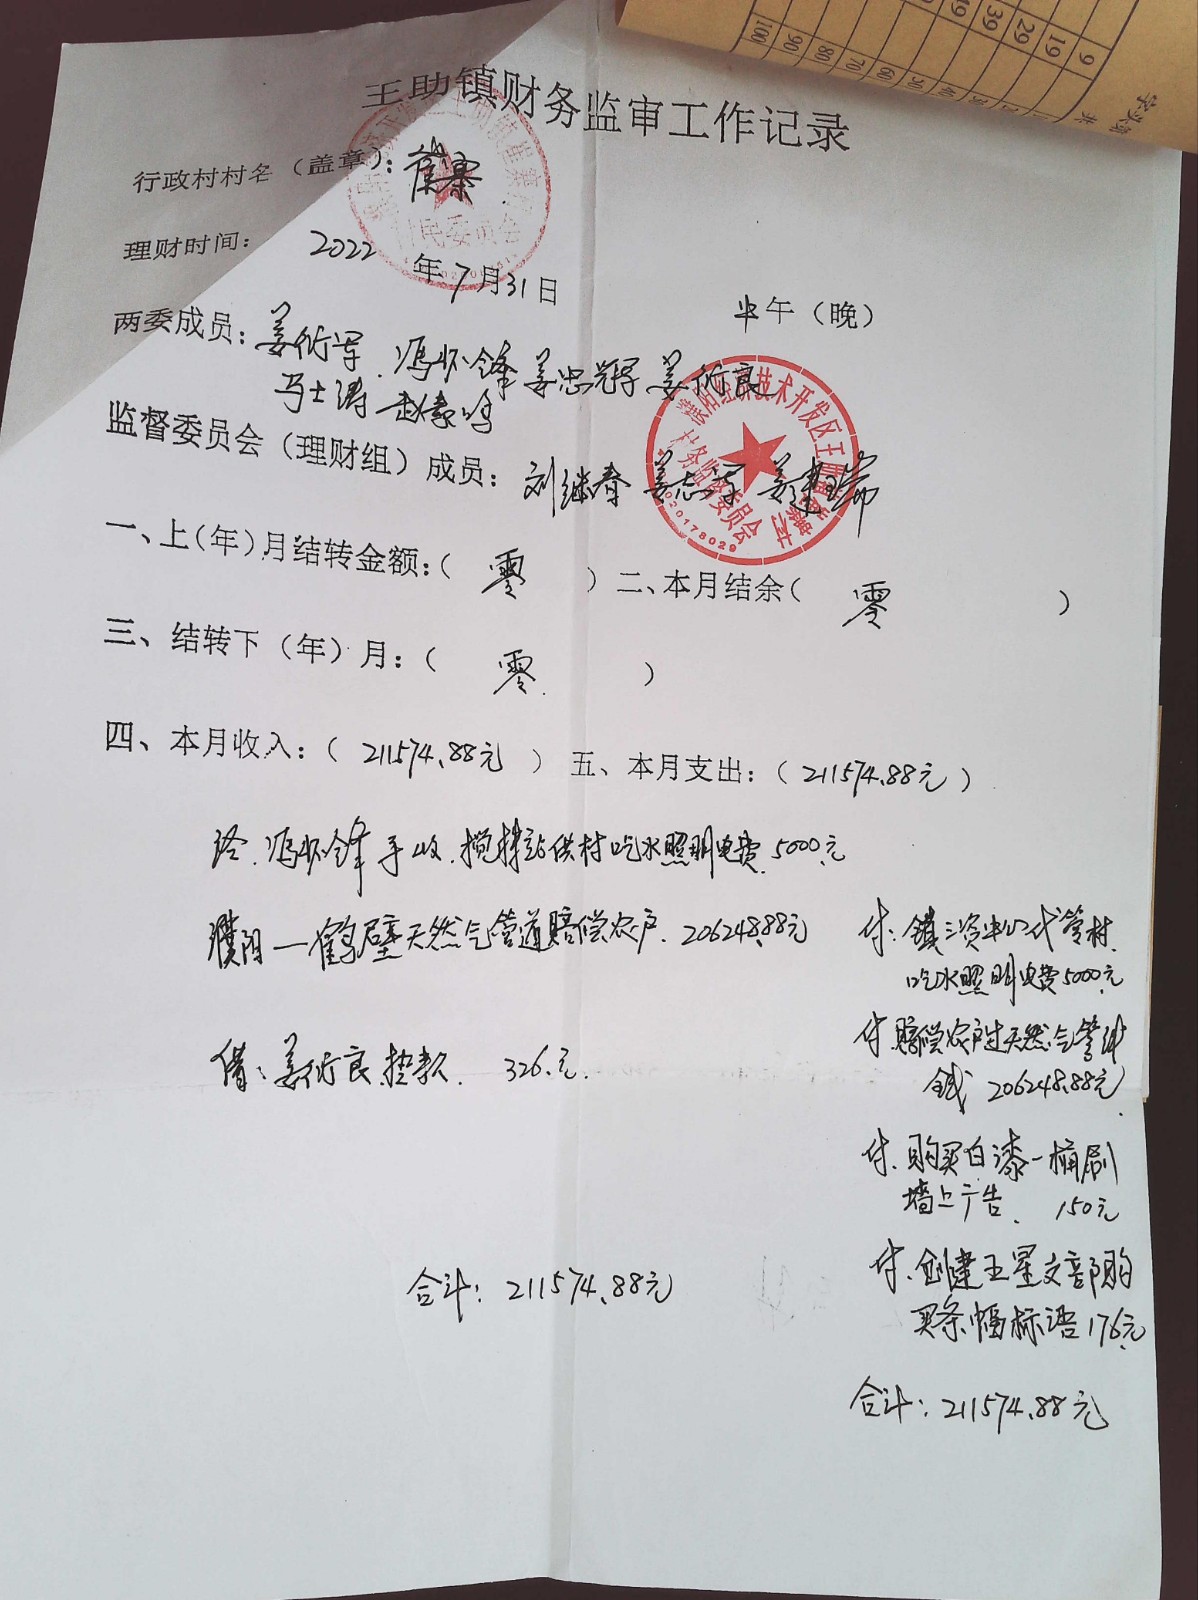 王助镇财务监审工作记录
行政村村名（盖章）：崔寨
理财时间： 2022 年 7月31日 中午（晚）
两委成员：姜衍军 冯怀锋 姜忠冠 姜衍良
马士涛 赵袁鸣
监督委员会（理财组）成员： 刘继春 姜志军 姜建瑞
一、上（年）月结转金额：（ 零 ） 二、本月结余（ 零 ）
三、结转下（年）月：（ 零 ）
四、本月收入：（ 211574.88元 ） 五、本月支出：（ 211574.88元 ）
经.冯怀锋手收.搅拌站供村吃水照明电费 5000元
濮阳—鹤壁天然气管道赔偿农户. 206248.88元
付：镇三资中心代管村
吃水照明电费5000元
借：姜衍良垫款. 326.元.
付.赔偿农户过天然气管线
钱 206248.88元
付.购买白漆一桶刷
墙上广告. 150元
付.创建五星支部购
买条幅标语176元
合计：211574.88元
合计：211574.88元
濮阳经济技术开发区王助镇崔寨村
村务监督委员会
020178029
民委员会
100 90 80 70 60 50
49 39 29 19 9